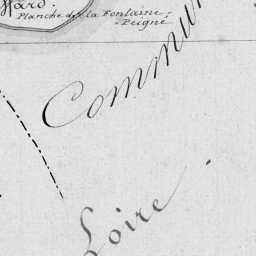 Planche de la Fontaine
Peigné
Commun
Loire